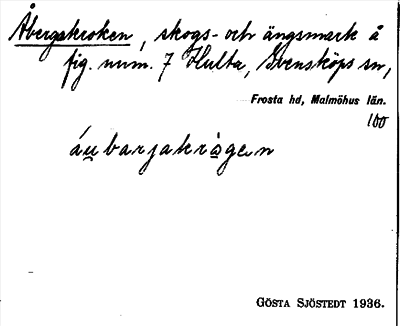 Åbergskroken, skogs- och ängsmark å
fig. num. 7 Hulta, Svensköps sn,
Frosta hd, Malmöhus län.
100
áu̲barjakrà̲gen
GÖSTA SJÖSTEDT 1936.